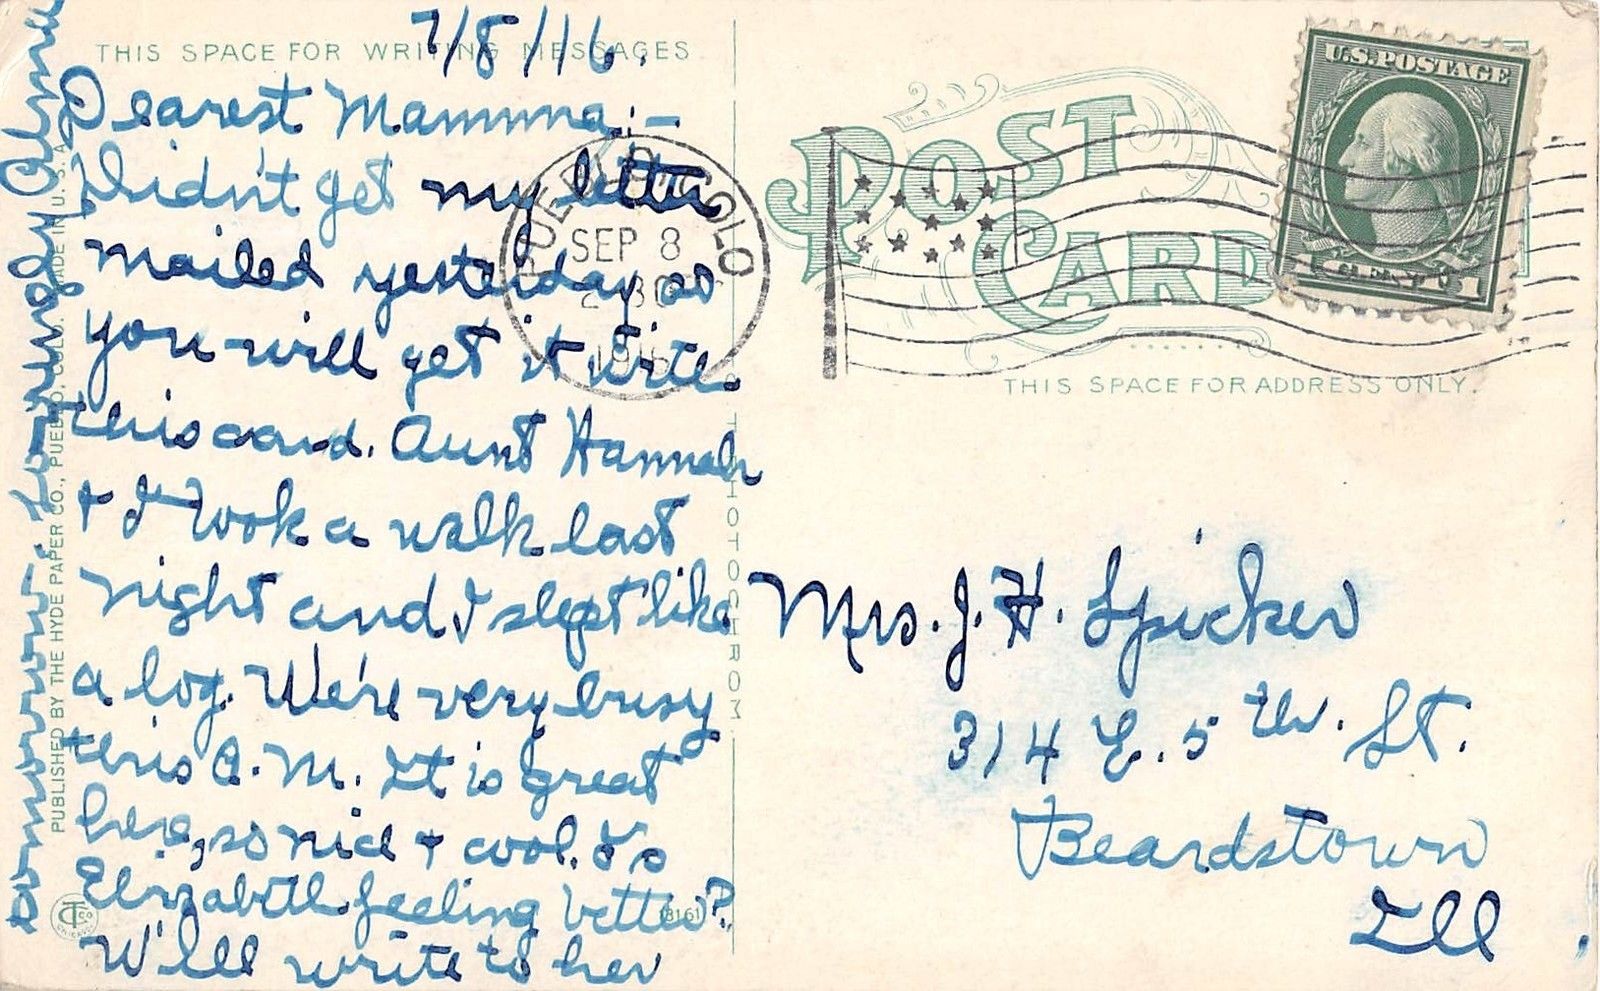 THIS SPACE FOR WRITING MESSAGES
7/8/16.
Dearest Mamma:-
Didn't get my letter
mailed yesterday so
you will get it with
this card. Aunt Hannah
& I took a walk last
night and I slept like
a log. We're very busy
this A.M. It is great
here, so nice & cool. Is
Elizabeth feeling better?
Will write to her
tomorrow. Lovingly Alma
PUBLISHED BY THE HYDE PAPER CO., PUEBLO, COLO. MADE IN U.S.A.
PHOTOCHROM
CHICAGO
PUEBLO COLO
SEP 8
1916
POST CARD
U.S. POSTAGE
1 CENT 1
THIS SPACE FOR ADDRESS ONLY.
Mrs. J. H. Spicker
314 E. 5th. St.
Beardstown
Ill